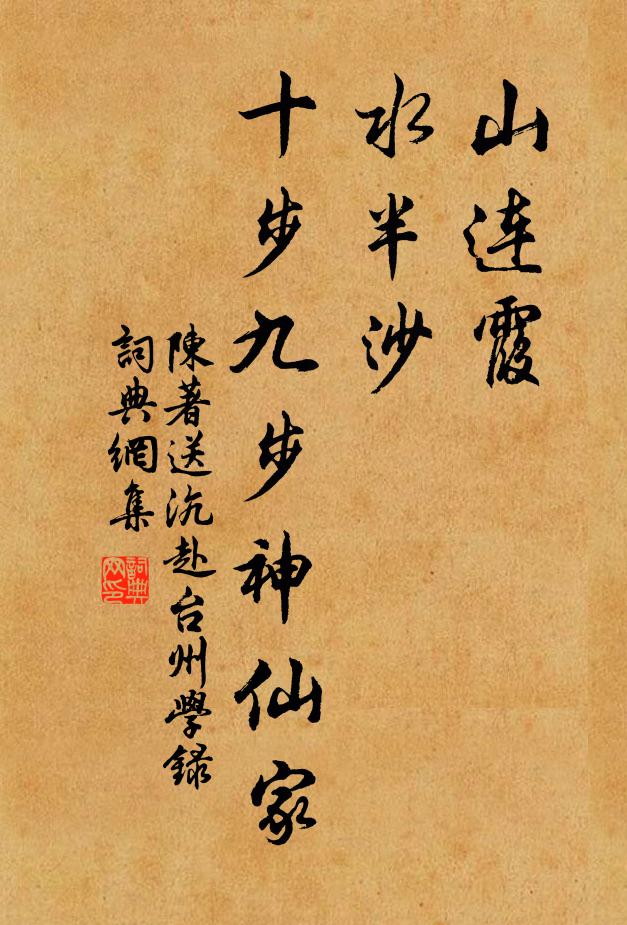 山連霞
水半沙
十步九步神仙家
陳著送沆赴台州學錄
詞典網集
詞典网印